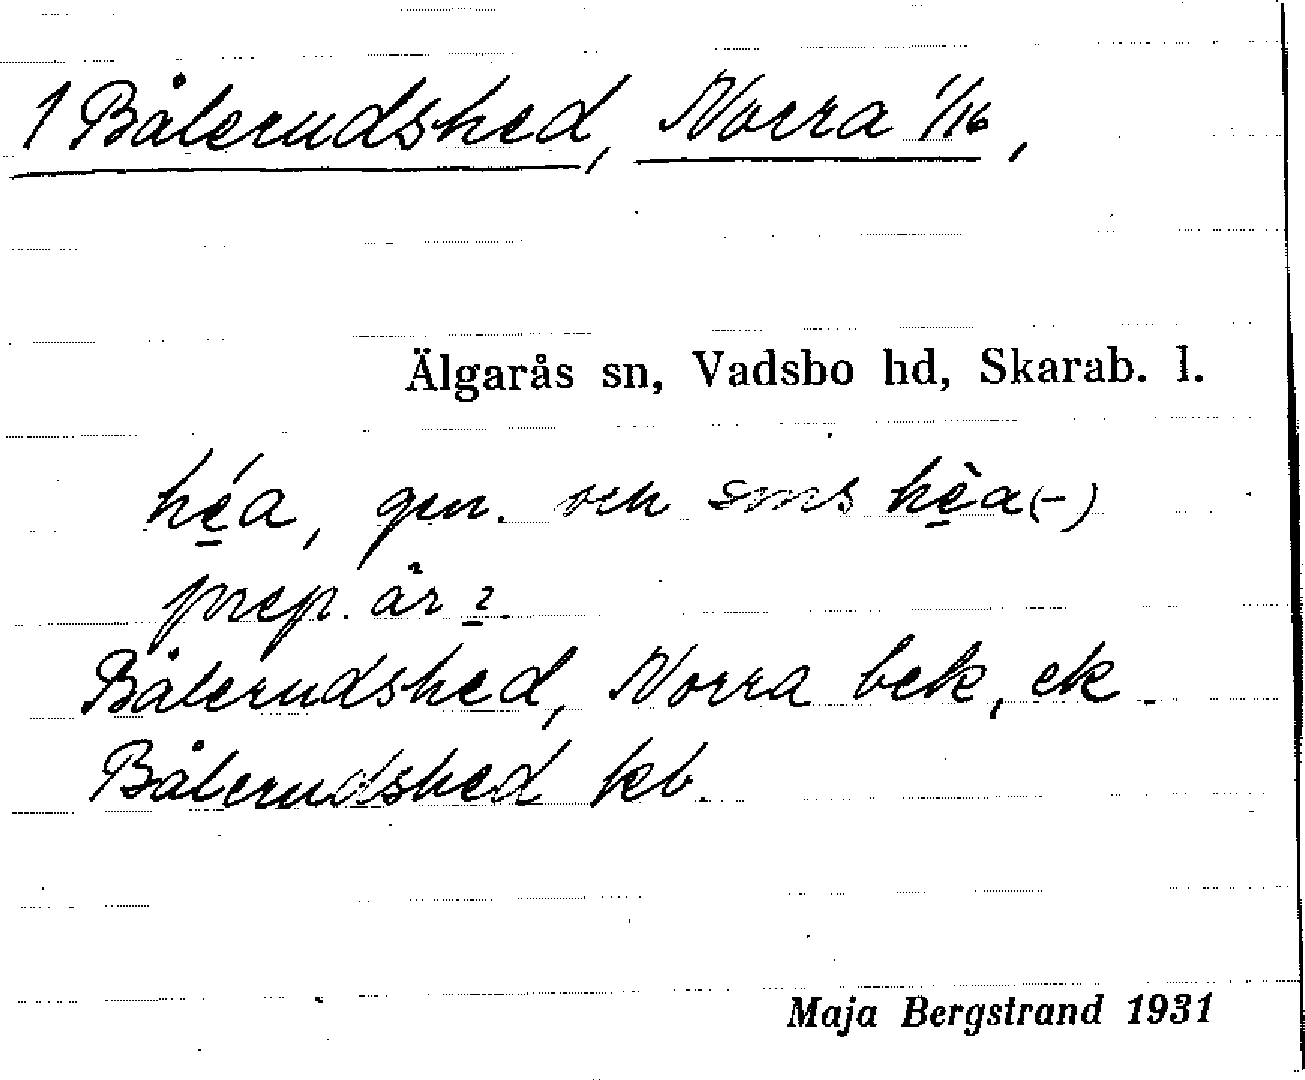 1 Bålerudshed, Norra 1/16,
Älgarås sn, Vadsbo hd, Skarab. l.
hé̲a, gen. och sms hè̲a(-)
prep. är 2.
Bålerudshed, Norra bek, ek.
Bålerudshed kb.
Maja Bergstrand 1931